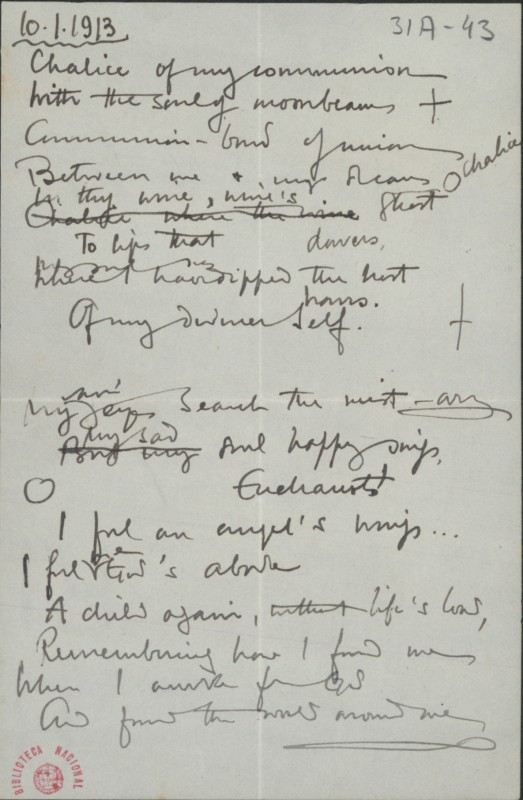 10.1.1913
31A-43
Chalice of my communion
With the soul of moonbeams +
Communion-bond of union
Between me & my dreams
O chalice
In thy wine, wine's ghost
Chalice where the wine
To lips that
Where I have dipped the host
hours.
Of my diviner Self.
My eyes search the mist
my sad
And my soul happy sings,
O Eucharist!
I feel an angel's wings...
I feel the God's abode
A child again, without life's load,
Remembering how I found me
When I awoke from God
And found the world around me
BIBLIOTECA NACIONAL